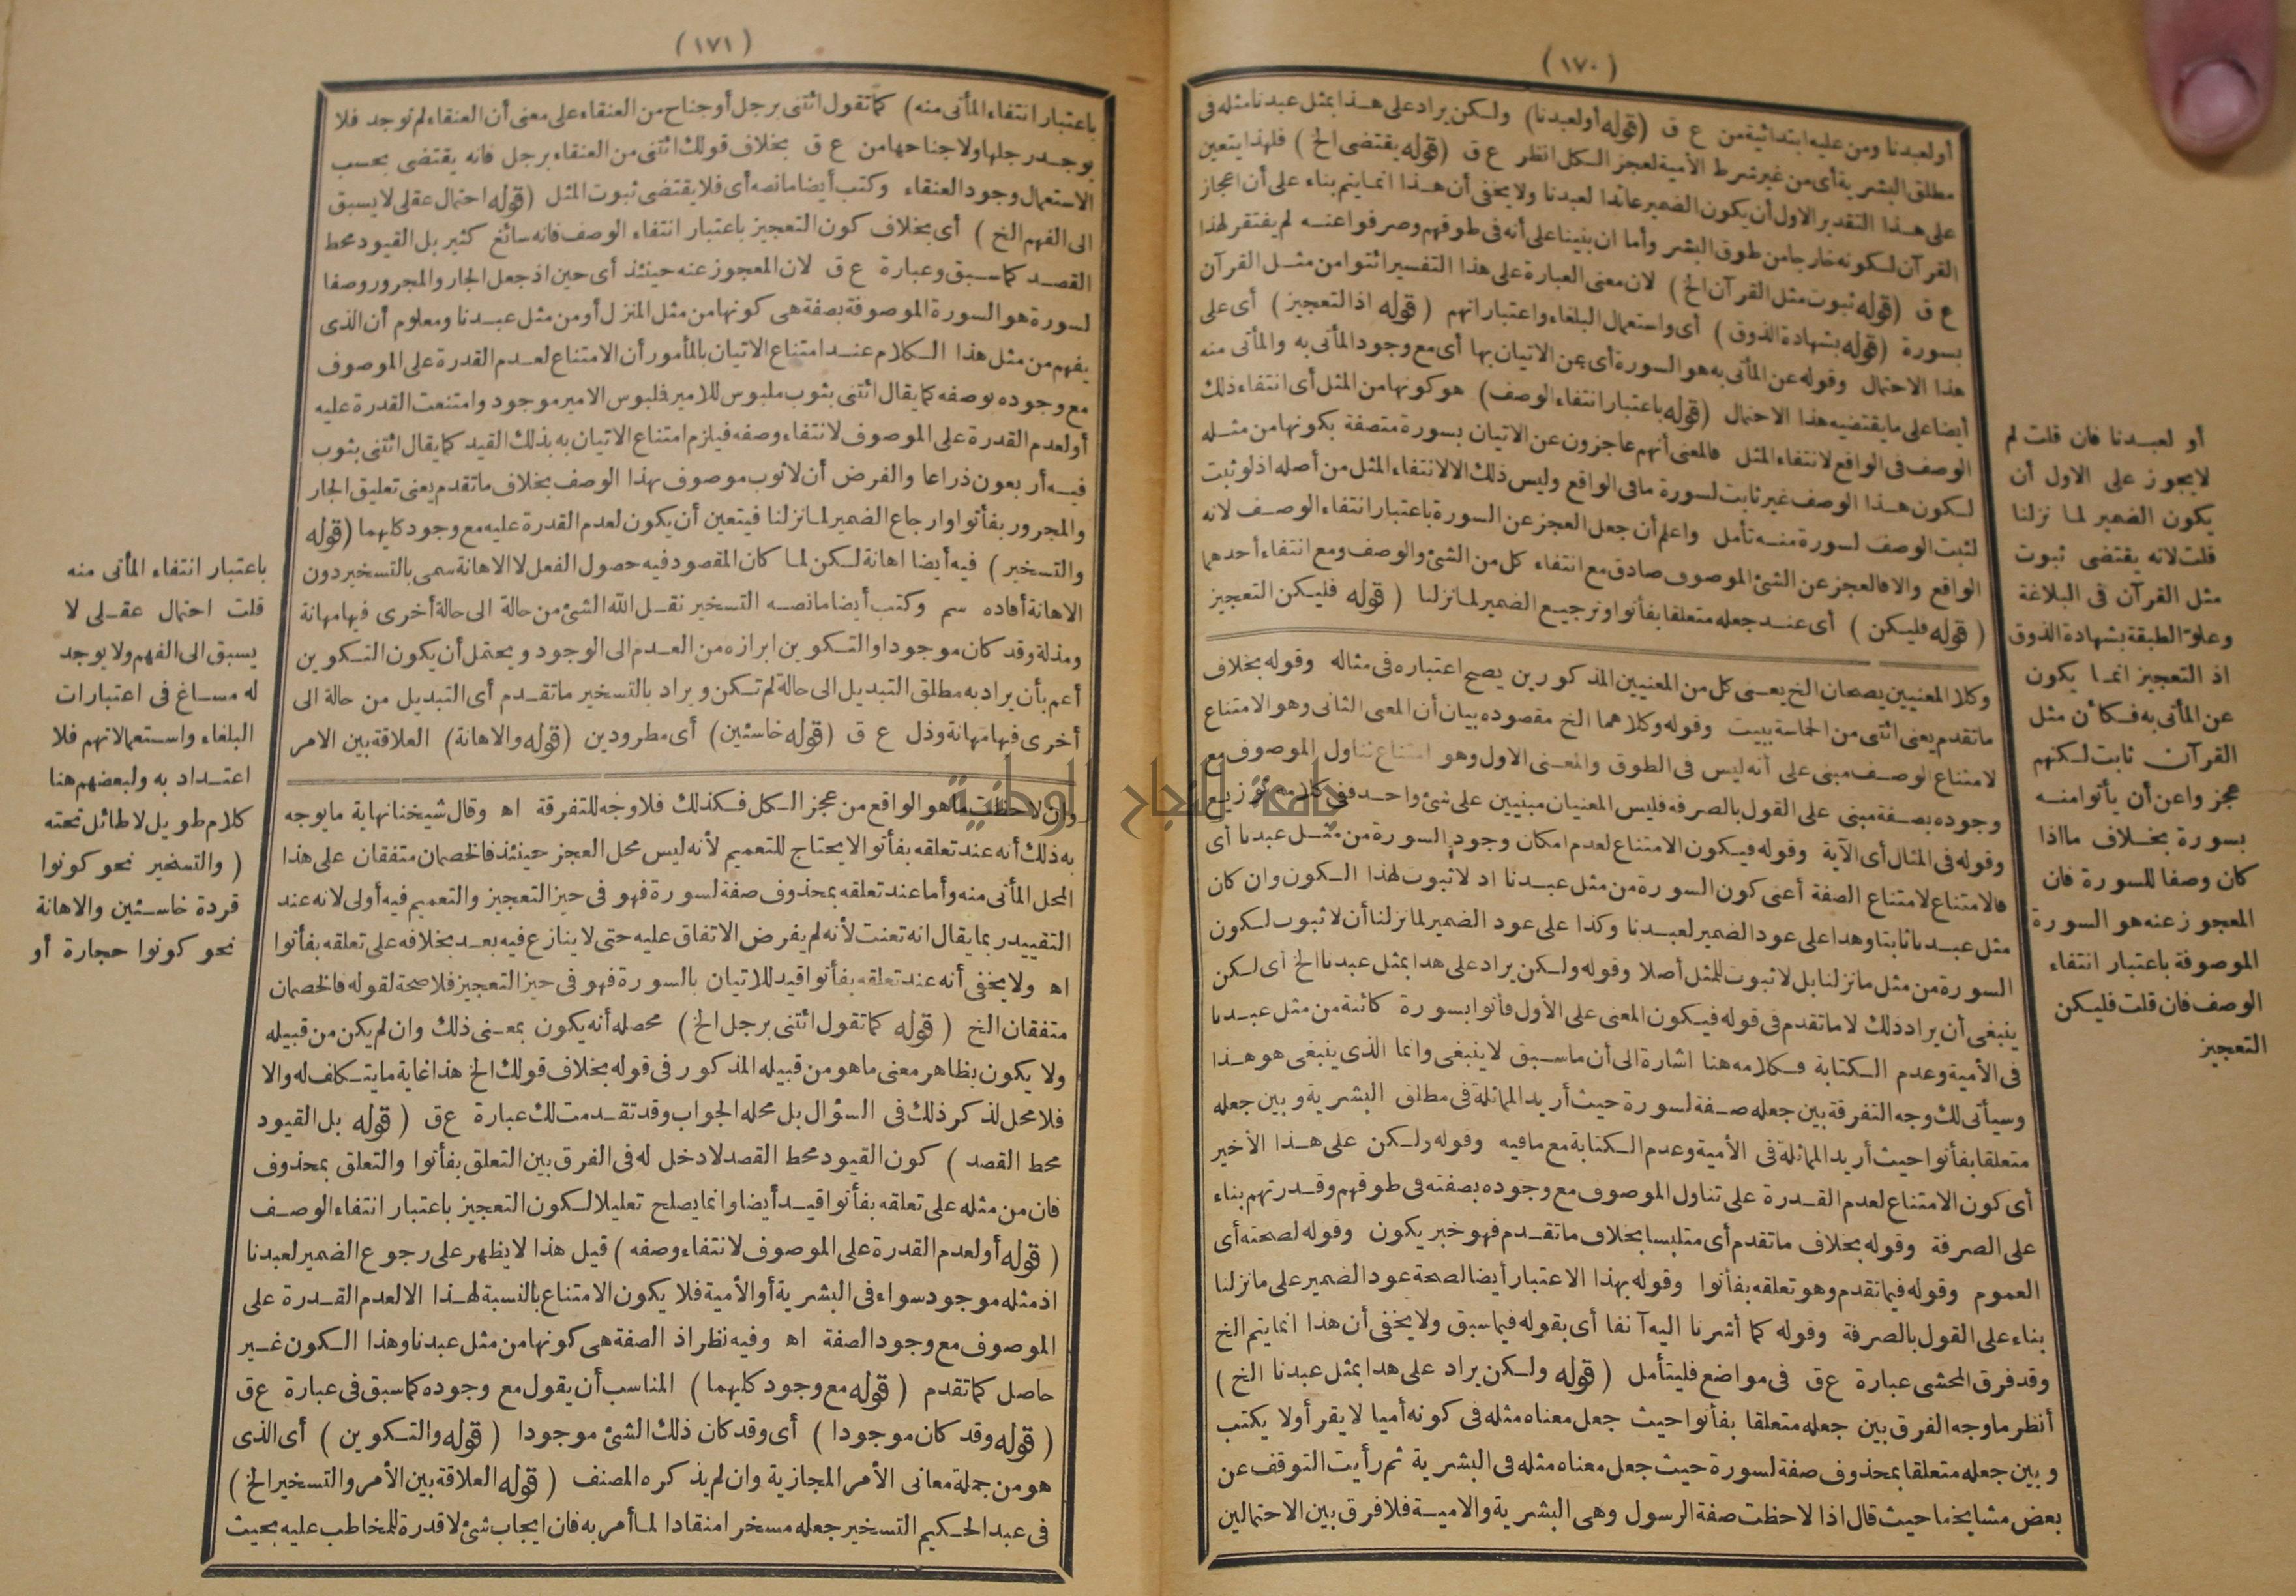 (١٧٠)
أو لعبدنا ومن عليه ابتدائية من ع ق (قوله أو لعبدنا) ولكن يراد على هذا بمثل عبدنا مثله فى
مطلق البشرية أى من غير شرط الأمية لعجز الكل انظر ع ق (قوله يقتضى الخ) فلهذا يتعين
على هذا التقدير الاول أن يكون الضمير عائدا لعبدنا ولا يخفى أن هذا انما يتم بناء على أن اعجاز
القرآن لكونه خارجا من طوق البشر وأما ان بنينا على أنه فى طوقهم وصرفوا عنه لم يفتقر لهذا
ع ق (قوله ثبوت مثل القرآن الخ) لان معنى العبارة على هذا التفسير ائتوا من مثل القرآن
بسورة (قوله بشهادة الذوق) أى واستعمال البلغاء واعتباراتهم (قوله اذ التعجيز) أى على
هذا الاحتمال وقوله عن المأتى به هو السورة أى عن الاتيان بها أى مع وجود المأتى به والمأتى منه
أيضا على ما يقتضيه هذا الاحتمال (قوله باعتبار انتفاء الوصف) هو كونها من المثل أى انتفاء ذلك
الوصف فى الواقع لانتفاء المثل فالمعنى أنهم عاجزون عن الاتيان بسورة متصفة بكونها من مثله
لكون هذا الوصف غير ثابت لسورة ما فى الواقع وليس ذلك الا لانتفاء المثل من أصله اذ لو ثبت
لثبت الوصف لسورة منه تأمل واعلم أن جعل العجز عن السورة باعتبار انتفاء الوصف لانه
الواقع والا فالعجز عن الشئ الموصوف صادق مع انتفاء كل من الشئ والوصف ومع انتفاء أحدهما
(قوله فليكن) أى عند جعله متعلقا بفأتوا وترجيع الضمير لما نزلنا (قوله فليكن التعجيز
وكلا المعنيين يصحان الخ يعنى كل من المعنيين المذكورين يصح اعتباره فى مثاله وقوله بخلاف
ما تقدم يعنى ائتنى من الحماسة ببيت وقوله وكلاهما الخ مقصوده بيان أن المعنى الثانى وهو الامتناع
لامتناع الوصف مبنى على أنه ليس فى الطوق والمعنى الاول وهو امتناع تناول الموصوف مع
وجوده بصفة مبنى على القول بالصرفة فليس المعنيان مبنيين على شئ واحد ففى كلامه توزيع
وقوله فى المثال أى الآية وقوله فيكون الامتناع لعدم امكان وجود السورة من مثل عبدنا أى
فالامتناع لامتناع الصفة أعنى كون السورة من مثل عبدنا اذ لا ثبوت لهذا الكون وان كان
مثل عبدنا ثابتا وهذا على عود الضمير لعبدنا وكذا على عود الضمير لما نزلنا أن لا ثبوت لكون
السورة من مثل ما نزلنا بل لا ثبوت للمثل أصلا وقوله ولكن يراد على هذا بمثل عبدنا الخ أى لكن
ينبغى أن يراد ذلك لا ما تقدم فى قوله فيكون المعنى على الأول فأتوا بسورة كائنة من مثل عبدنا
فى الأمية وعدم الكتابة فكلامه هنا اشارة الى أن ما سبق لا ينبغى وانما الذى ينبغى هو هذا
وسيأتى لك وجه التفرقة بين جعله صفة لسورة حيث أريد المماثلة فى مطلق البشرية وبين جعله
متعلقا بفأتوا حيث أريد المماثلة فى الأمية وعدم الكتابة مع ما فيه وقوله ولكن على هذا الأخير
أى كون الامتناع لعدم القدرة على تناول الموصوف مع وجوده بصفته فى طوقهم وقدرتهم بناء
على الصرفة وقوله بخلاف ما تقدم أى متلبسا بخلاف ما تقدم فهو خبر يكون وقوله لصحته أى
العموم وقوله فيما تقدم وهو تعلقه بفأتوا وقوله بهذا الاعتبار أيضا لصحة عود الضمير على ما نزلنا
بناء على القول بالصرفة وقوله كما أشرنا اليه آنفا أى بقوله فيما سبق ولا يخفى أن هذا انما يتم الخ
وقد فرق المحشى عبارة ع ق فى مواضع فليتأمل (قوله ولكن يراد على هذا بمثل عبدنا الخ)
أنظر ما وجه الفرق بين جعله متعلقا بفأتوا حيث جعل معناه مثله فى كونه أميا لا يقرأ ولا يكتب
وبين جعله متعلقا بمحذوف صفة لسورة حيث جعل معناه مثله فى البشرية ثم رأيت التوقف عن
بعض مشايخنا حيث قال اذا لاحظت صفة الرسول وهى البشرية والامية فلا فرق بين الاحتمالين
أو لعبدنا فان قلت لم
لا يجوز على الاول أن
يكون الضمير لما نزلنا
قلت لانه يقتضى ثبوت
مثل القرآن فى البلاغة
وعلو الطبقة بشهادة الذوق
اذ التعجيز انما يكون
عن المأتى به فكأن مثل
القرآن ثابت لكنهم
عجزوا عن أن يأتوا منه
بسورة بخلاف ما اذا
كان وصفا للسورة فان
المعجوز عنه هو السورة
الموصوفة باعتبار انتفاء
الوصف فان قلت فليكن
التعجيز
(١٧١)
باعتبار انتفاء المأتى منه) كما تقول ائتنى برجل أو جناح من العنقاء على معنى أن العنقاء لم توجد فلا
يوجد رجلها ولا جناحها من ع ق بخلاف قولك ائتنى من العنقاء برجل فانه يقتضى بحسب
الاستعمال وجود العنقاء وكتب أيضا ما نصه أى فلا يقتضى ثبوت المثل (قوله احتمال عقلى لا يسبق
الى الفهم الخ) أى بخلاف كون التعجيز باعتبار انتفاء الوصف فانه سائغ كثير بل القيود محط
القصد كما سبق وعبارة ع ق لان المعجوز عنه حينئذ أى حين اذ جعل الجار والمجرور وصفا
لسورة هو السورة الموصوفة بصفة هى كونها من مثل المنزل أو من مثل عبدنا ومعلوم أن الذى
يفهم من مثل هذا الكلام عند امتناع الاتيان بالمأمور أن الامتناع لعدم القدرة على الموصوف
مع وجوده بوصفه كما يقال ائتنى بثوب ملبوس للامير فلبوس الامير موجود وامتنعت القدرة عليه
أو لعدم القدرة على الموصوف لانتفاء وصفه فيلزم امتناع الاتيان به بذلك القيد كما يقال ائتنى بثوب
فيه أربعون ذراعا والفرض أن لا ثوب موصوف بهذا الوصف بخلاف ما تقدم يعنى تعليق الجار
والمجرور بفأتوا وارجاع الضمير لما نزلنا فيتعين أن يكون لعدم القدرة عليه مع وجود كليهما (قوله
والتسخير) فيه أيضا اهانة لكن لما كان المقصود فيه حصول الفعل لا الاهانة سمى بالتسخير دون
الاهانة أفاده سم وكتب أيضا ما نصه التسخير نقل الله الشئ من حالة الى حالة أخرى فيها مهانة
ومذلة وقد كان موجودا والتكوين ابرازه من العدم الى الوجود ويحتمل أن يكون التكوين
أعم بأن يراد به مطلق التبديل الى حالة لم تكن ويراد بالتسخير ما تقدم أى التبديل من حالة الى
أخرى فيها مهانة وذل ع ق (قوله خاسئين) أى مطرودين (قوله والاهانة) العلاقة بين الامر
وان لاحظت ما هو الواقع من عجز الكل فكذلك فلا وجه للتفرقة اه وقال شيخنا نهاية ما يوجه
به ذلك أنه عند تعلقه بفأتوا لا يحتاج للتعميم لأنه ليس محل العجز حينئذ فالخصمان متفقان على هذا
المحل المأتى منه وأما عند تعلقه بمحذوف صفة لسورة فهو فى حيز التعجيز والتعميم فيه أولى لانه عند
التقييد ربما يقال انه تعنت لأنه لم يفرض الاتفاق عليه حتى لا ينازع فيه بعد بخلافه على تعلقه بفأتوا
اه ولا يخفى أنه عند تعلقه بفأتوا قيد للاتيان بالسورة فهو فى حيز التعجيز فلا صحة لقوله فالخصمان
متفقان الخ (قوله كما تقول ائتنى برجل الخ) محصله أنه يكون بمعنى ذلك وان لم يكن من قبيله
ولا يكون بظاهر معنى ما هو من قبيله المذكور فى قوله بخلاف قولك الخ هذا غاية ما يتكلف له والا
فلا محل لذكر ذلك فى السؤال بل محله الجواب وقد تقدمت لك عبارة ع ق (قوله بل القيود
محط القصد) كون القيود محط القصد لا دخل له فى الفرق بين التعلق بفأتوا والتعلق بمحذوف
فان من مثله على تعلقه بفأتوا قيد أيضا وانما يصلح تعليلا لكون التعجيز باعتبار انتفاء الوصف
(قوله أو لعدم القدرة على الموصوف لانتفاء وصفه) قيل هذا لا يظهر على رجوع الضمير لعبدنا
اذ مثله موجود سواء فى البشرية أو الأمية فلا يكون الامتناع بالنسبة لهذا الا لعدم القدرة على
الموصوف مع وجود الصفة اه وفيه نظر اذ الصفة هى كونها من مثل عبدنا وهذا الكون غير
حاصل كما تقدم (قوله مع وجود كليهما) المناسب أن يقول مع وجوده كما سبق فى عبارة ع ق
(قوله وقد كان موجودا) أى وقد كان ذلك الشئ موجودا (قوله والتكوين) أى الذى
هو من جملة معانى الأمر المجازية وان لم يذكره المصنف (قوله العلاقة بين الأمر والتسخير الخ)
فى عبد الحكيم التسخير جعله مسخرا منقادا لما أمر به فان ايجاب شئ لا قدرة للمخاطب عليه بحيث
باعتبار انتفاء المأتى منه
قلت احتمال عقلى لا
يسبق الى الفهم ولا يوجد
له مساغ فى اعتبارات
البلغاء واستعمالاتهم فلا
اعتداد به ولبعضهم هنا
كلام طويل لا طائل تحته
(والتسخير نحو كونوا
قردة خاسئين والاهانة
نحو كونوا حجارة أو
جامعة النجاح الوطنية